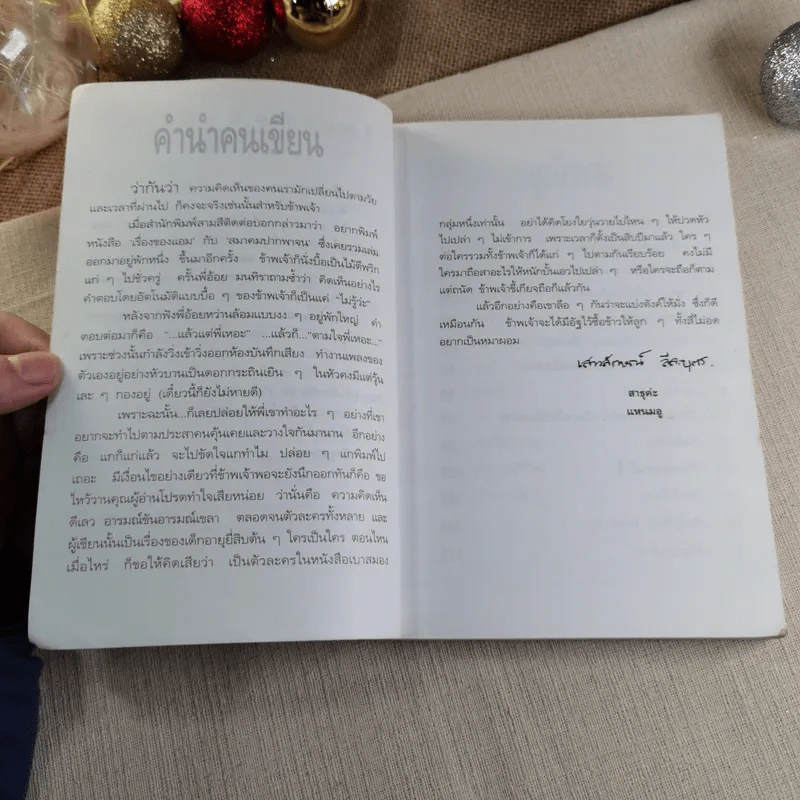 คำนำคนเขียน
ว่ากันว่า ความคิดเห็นของคนเรามักเปลี่ยนไปตามวัย
และเวลาที่ผ่านไป ก็คงจะจริงเช่นนั้นสำหรับข้าพเจ้า
เมื่อสำนักพิมพ์สามสีติดต่อบอกกล่าวมาว่า อยากพิมพ์
หนังสือ 'เรื่องของแอม' กับ 'สมาคมปากพาจน' ซึ่งเคยรวมเล่ม
ออกมาอยู่พักหนึ่ง ขึ้นมาอีกครั้ง ข้าพเจ้าก็นั่งบื้อเป็นไม้ตีพริก
แก่ ๆ ไปชั่วครู่ ครั้นพี่อ้อย มนทิราถามซ้ำว่า คิดเห็นอย่างไร
คำตอบโดยอัตโนมัติแบบบื้อ ๆ ของข้าพเจ้าก็เป็นแค่ "ไม่รู้ว่ะ"
หลังจากฟังพี่อ้อยหว่านล้อมแบบงง ๆ อยู่พักใหญ่ คำ
ตอบต่อมาก็คือ "...แล้วแต่พี่เหอะ" ...แล้วก็..."ตามใจพี่เหอะ..."
เพราะช่วงนั้นกำลังวิ่งเข้าวิ่งออกห้องบันทึกเสียง ทำงานเพลงของ
ตัวเองอยู่อย่างหัวบานเป็นดอกกระถินเยิน ๆ ในหัวคงมีแต่วุ้น
เละ ๆ กองอยู่ (เดี๋ยวนี้ก็ยังไม่หายดี)
เพราะฉะนั้น...ก็เลยปล่อยให้พี่เขาทำอะไร ๆ อย่างที่เขา
อยากจะทำไปตามประสาคนคุ้นเคยและวางใจกันมานาน อีกอย่าง
คือ แกก็แก่แล้ว จะไปขัดใจแกทำไม ปล่อย ๆ แกพิมพ์ไป
เถอะ มีเงื่อนไขอย่างเดียวที่ข้าพเจ้าพอจะยังนึกออกทันก็คือ ขอ
ไหว้วานคุณผู้อ่านโปรดทำใจเสียหน่อย ว่านั่นคือ ความคิดเห็น
ดีเลว อารมณ์ขันอารมณ์เขลา ตลอดจนตัวละครทั้งหลาย และ
ผู้เขียนนั้นเป็นเรื่องของเด็กอายุยี่สิบต้น ๆ ใครเป็นใคร ตอนไหน
เมื่อไหร่ ก็ขอให้คิดเสียว่า เป็นตัวละครในหนังสือเบาสมอง
กลุ่มหนึ่งเท่านั้น อย่าได้คิดโยงใยวุ่นวายไปไหน ๆ ให้ปวดหัว
ไปเปล่า ๆ ไม่เข้าการ เพราะเวลาก็ตั้งเป็นสิบปีมาแล้ว ใคร ๆ
ต่อใครรวมทั้งข้าพเจ้าก็ได้แก่ ๆ ไปตามกันเรียบร้อย คงไม่มี
ใครมาถือสาอะไรให้หนักบั้นเอวไปเปล่า ๆ หรือใครจะถือก็ตาม
แต่ถนัด ข้าพเจ้าขี้เกียจถือก็แล้วกัน
แล้วอีกอย่างคือเขาลือ ๆ กันว่าจะแบ่งตังค์ให้มั่ง ซึ่งก็ดี
เหมือนกัน ข้าพเจ้าจะได้มีอัฐไว้ซื้อข้าวให้ลูก ๆ ทั้งสี่ไม่อด
อยากเป็นหมาผอม
เสาวลักษณ์ ลีละบุตร.
สาธุค่ะ
แหนมอู